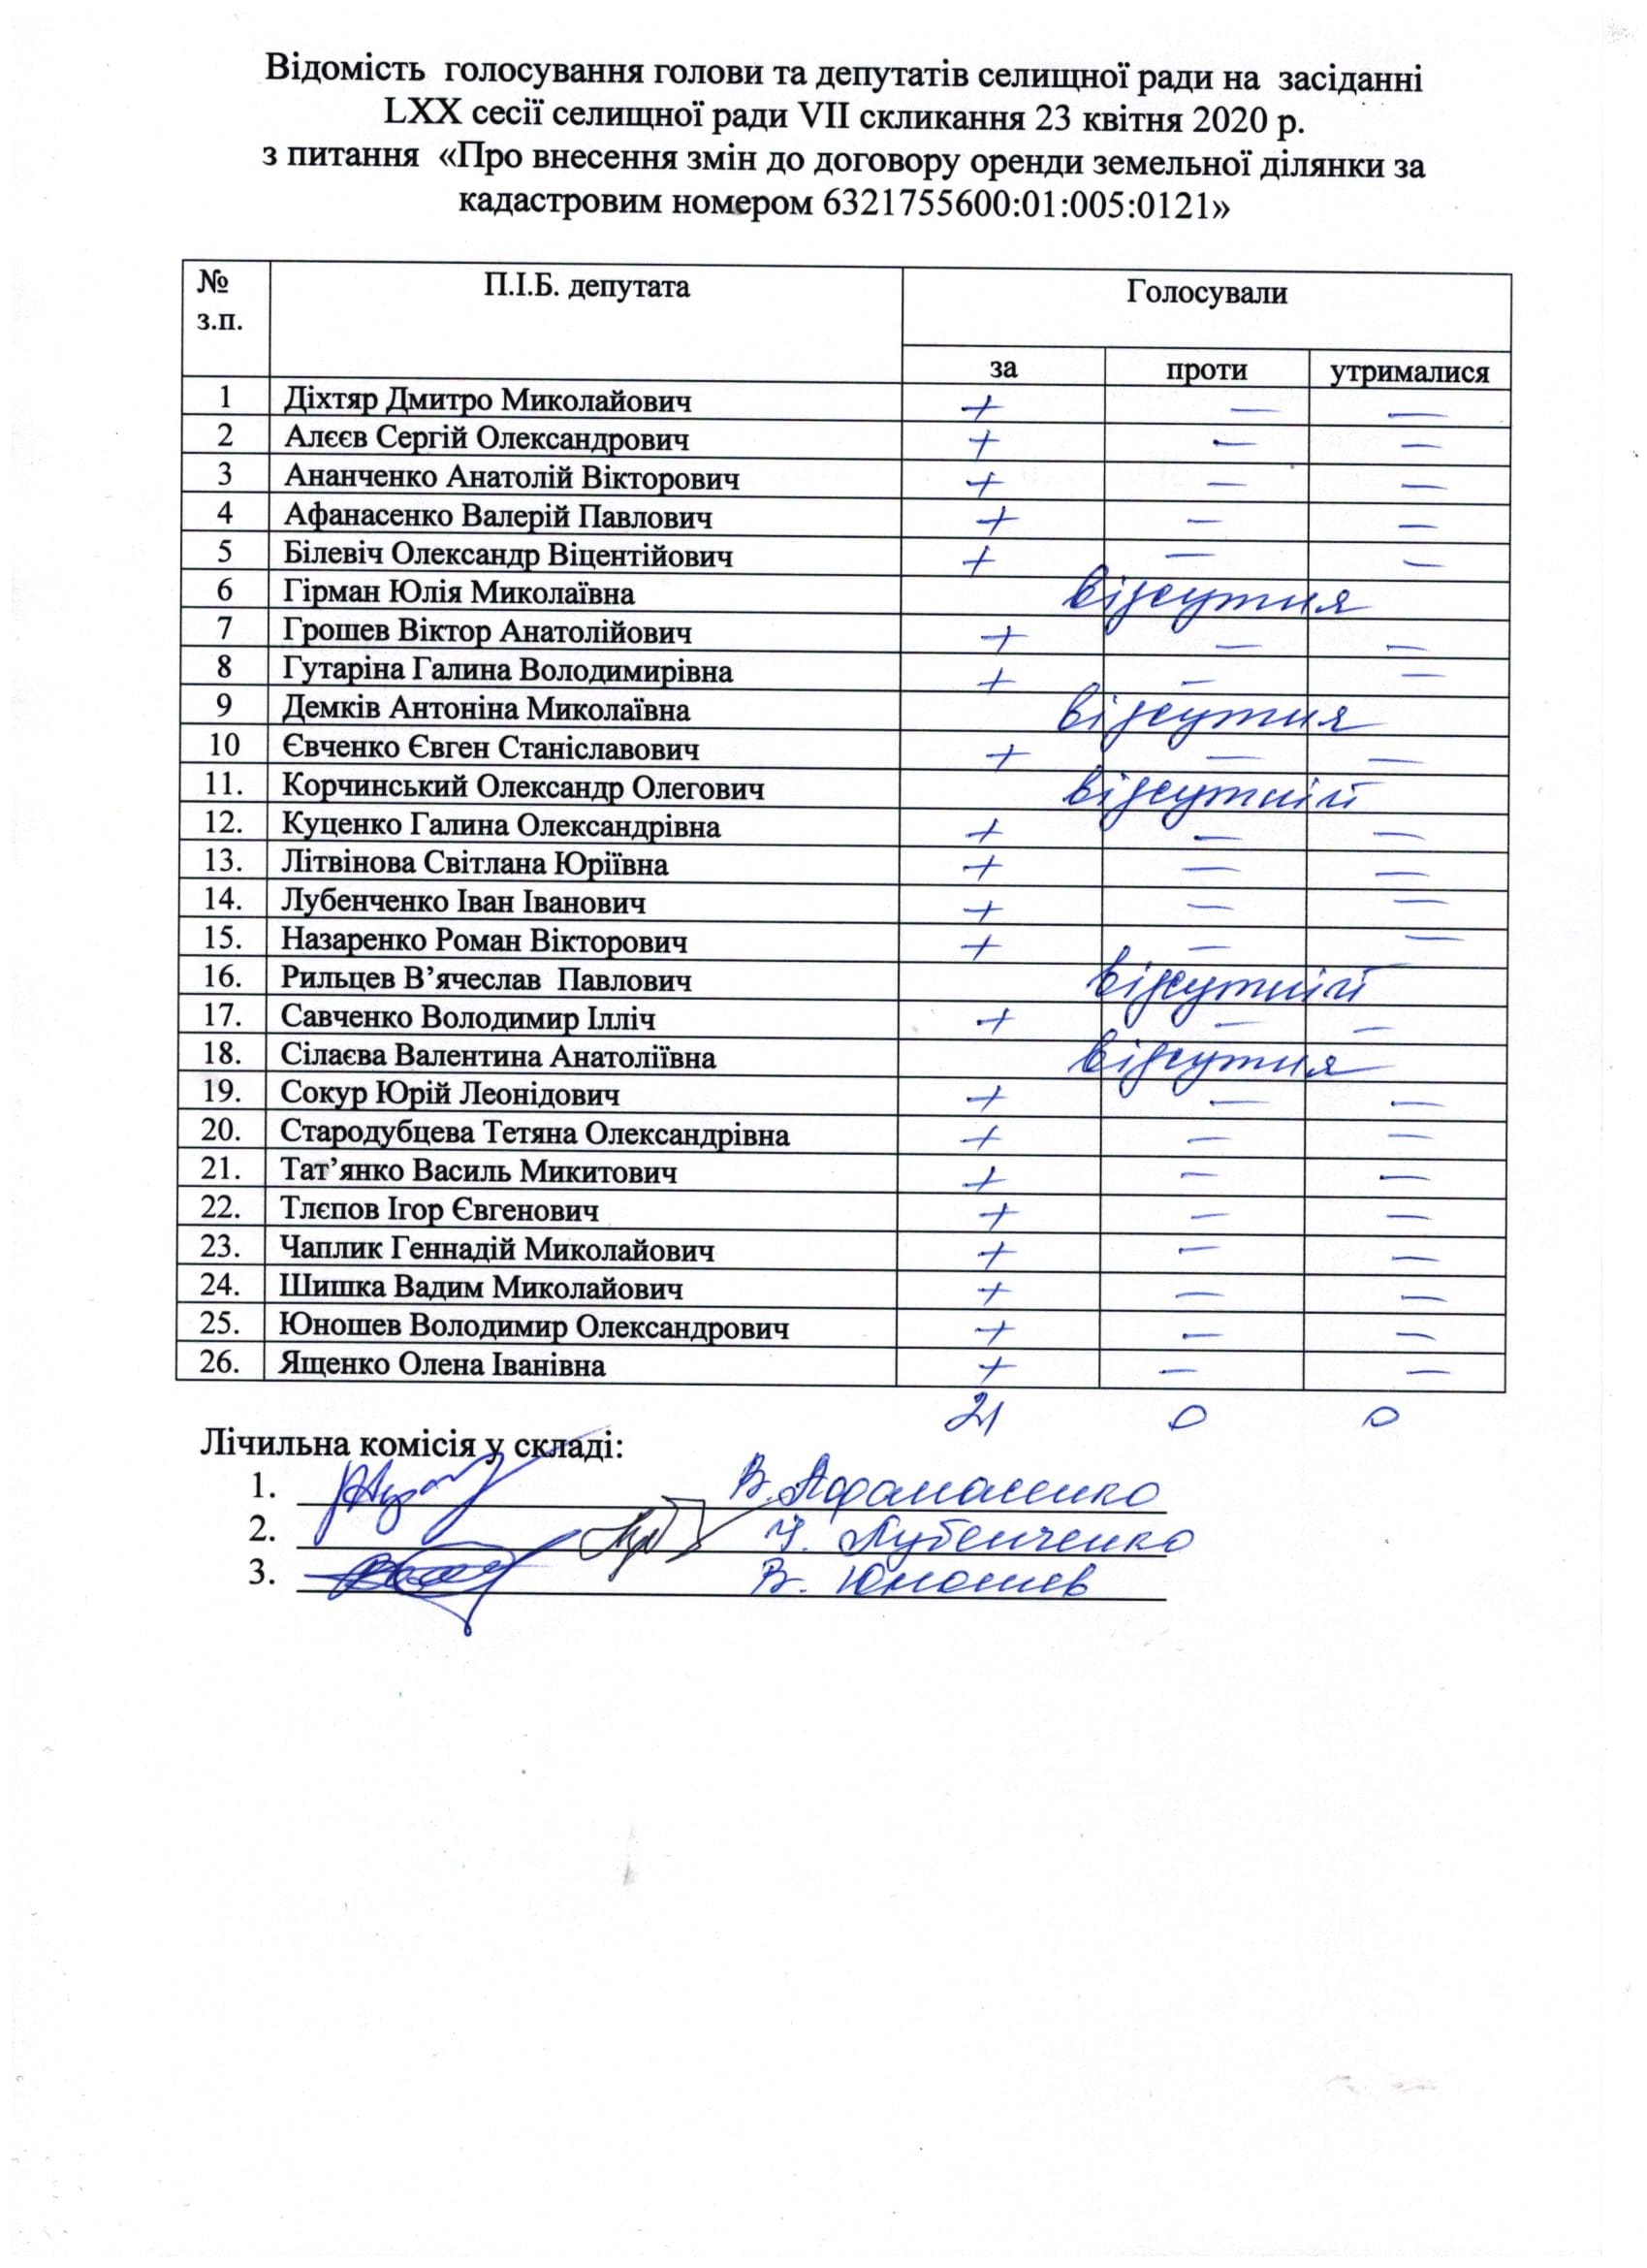 Відомість голосування голови та депутатів селищної ради на засіданні
LXX сесії селищної ради VII скликання 23 квітня 2020 р.
з питання «Про внесення змін до договору оренди земельної ділянки за
кадастровим номером 6321755600:01:005:0121»
№ з.п. П.І.Б. депутата Голосували
за проти утрималися
1 Діхтяр Дмитро Миколайович + — —
2 Алєєв Сергій Олександрович + — —
3 Ананченко Анатолій Вікторович + — —
4 Афанасенко Валерій Павлович + — —
5 Білевіч Олександр Віцентійович + — —
6 Гірман Юлія Миколаївна відсутня
7 Грошев Віктор Анатолійович + — —
8 Гутаріна Галина Володимирівна + — —
9 Демків Антоніна Миколаївна відсутня
10 Євченко Євген Станіславович + — —
11. Корчинський Олександр Олегович відсутній
12. Куценко Галина Олександрівна + — —
13. Літвінова Світлана Юріївна + — —
14. Лубенченко Іван Іванович + — —
15. Назаренко Роман Вікторович + — —
16. Рильцев В’ячеслав Павлович відсутній
17. Савченко Володимир Ілліч + — —
18. Сілаєва Валентина Анатоліївна відсутня
19. Сокур Юрій Леонідович + — —
20. Стародубцева Тетяна Олександрівна + — —
21. Тат’янко Василь Микитович + — —
22. Тлєпов Ігор Євгенович + — —
23. Чаплик Геннадій Миколайович + — —
24. Шишка Вадим Миколайович + — —
25. Юношев Володимир Олександрович + — —
26. Ященко Олена Іванівна + — —
21 0 0
Лічильна комісія у складі:
1. В. Афанасенко
2. І. Лубенченко
3. В. Юношев